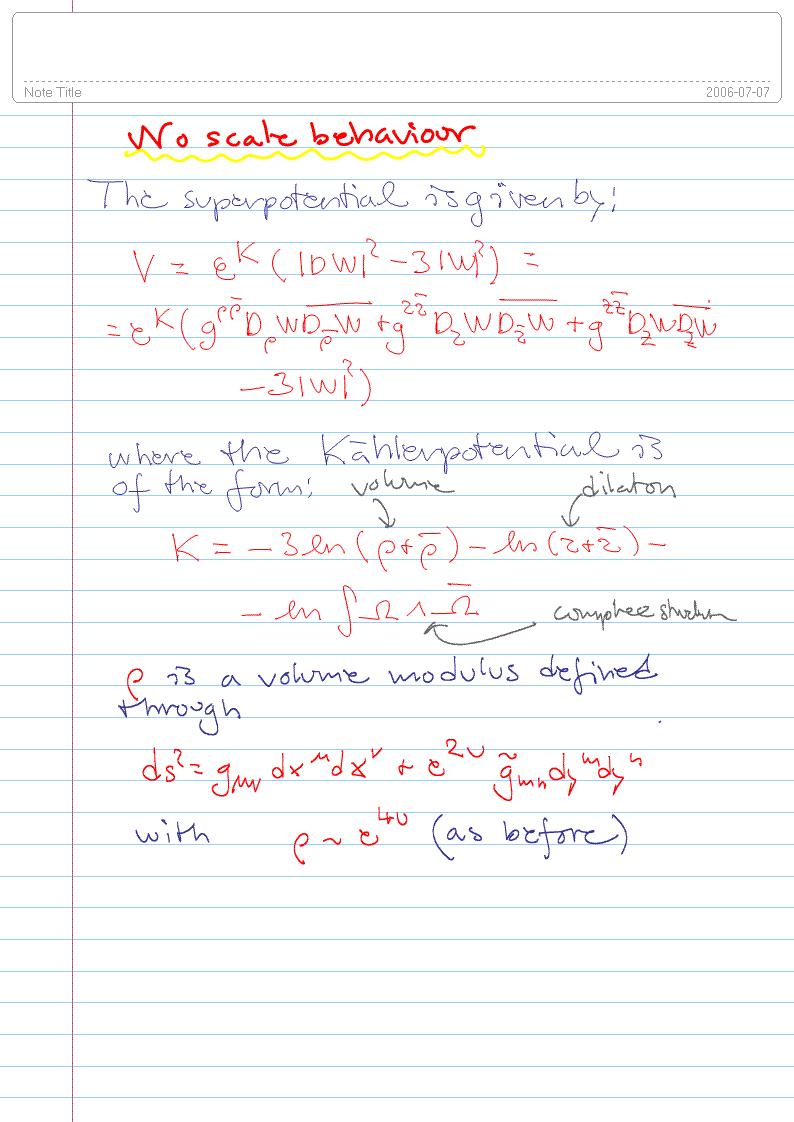 Note Title
2006-07-07
No scale behaviour
The superpotential is given by:
V = e^K (|DW|² − 3|W|²) =
= e^K (g^{ρρ̄} D_ρ W \overline{D_ρ W} + g^{zz̄} D_z W \overline{D_z W} + g^{zz̄} D_z W \overline{D_z W}
− 3|W|²)
where the Kählerpotential is
of the form: volume dilaton
K = −3 ln (ρ + ρ̄) − ln (z + z̄) −
− ln ∫ Ω ∧ Ω̄
ρ is a volume modulus defined
through
ds² = g_{μν} dx^μ dx^ν + e^{2u} g̃_{mn} dy^m dy^n
with ρ ~ e^{4u} (as before)